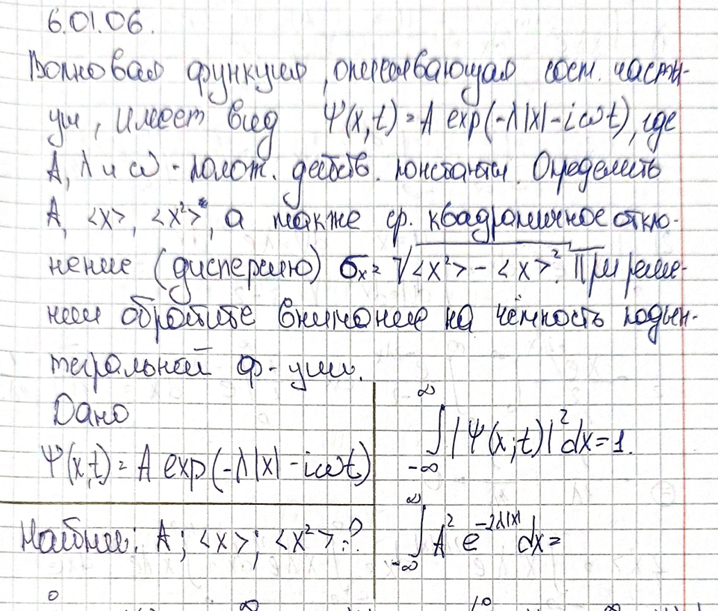 6.01.06.
Волновая функция, описывающая сост. части-
цы, имеет вид Ψ(x,t) = A exp(-λ|x|-iωt), где
A, λ и ω - полож. действ. константы. Определить
A, <x>, <x²>, а также ср. квадратичное откло-
нение (дисперсию) σx = √<x²> - <x>². При реше-
нии обратите внимание на чётность подын-
тегральной ф-ции.
Дано
Ψ(x,t) = A exp(-λ|x|-iωt)
Найти: A; <x>; <x²> - ?
∞
∫ |Ψ(x;t)|² dx = 1.
-∞
∞
∫ A² e^-2λ|x| dx =
-∞